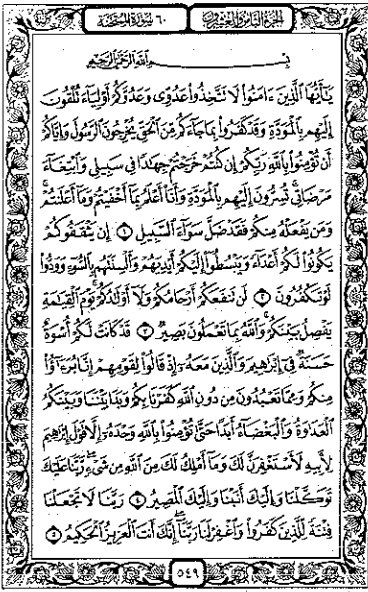 الجزء الثامن والعشرون ٦٠ سورة الممتحنة
بِسْمِ اللَّهِ الرَّحْمَٰنِ الرَّحِيمِ
يَٰٓأَيُّهَا ٱلَّذِينَ ءَامَنُوا۟ لَا تَتَّخِذُوا۟ عَدُوِّى وَعَدُوَّكُمْ أَوْلِيَآءَ تُلْقُونَ
إِلَيْهِم بِٱلْمَوَدَّةِ وَقَدْ كَفَرُوا۟ بِمَا جَآءَكُم مِّنَ ٱلْحَقِّ يُخْرِجُونَ ٱلرَّسُولَ وَإِيَّاكُمْ
أَن تُؤْمِنُوا۟ بِٱللَّهِ رَبِّكُمْ إِن كُنتُمْ خَرَجْتُمْ جِهَٰدًا فِى سَبِيلِى وَٱبْتِغَآءَ
مَرْضَاتِى تُسِرُّونَ إِلَيْهِم بِٱلْمَوَدَّةِ وَأَنَا۠ أَعْلَمُ بِمَآ أَخْفَيْتُمْ وَمَآ أَعْلَنتُمْ
وَمَن يَفْعَلْهُ مِنكُمْ فَقَدْ ضَلَّ سَوَآءَ ٱلسَّبِيلِ ١ إِن يَثْقَفُوكُمْ
يَكُونُوا۟ لَكُمْ أَعْدَآءً وَيَبْسُطُوٓا۟ إِلَيْكُمْ أَيْدِيَهُمْ وَأَلْسِنَتَهُم بِٱلسُّوٓءِ وَوَدُّوا۟
لَوْ تَكْفُرُونَ ٢ لَن تَنفَعَكُمْ أَرْحَامُكُمْ وَلَآ أَوْلَٰدُكُمْ يَوْمَ ٱلْقِيَٰمَةِ
يَفْصِلُ بَيْنَكُمْ وَٱللَّهُ بِمَا تَعْمَلُونَ بَصِيرٌ ٣ قَدْ كَانَتْ لَكُمْ أُسْوَةٌ
حَسَنَةٌ فِىٓ إِبْرَٰهِيمَ وَٱلَّذِينَ مَعَهُۥٓ إِذْ قَالُوا۟ لِقَوْمِهِمْ إِنَّا بُرَءَٰٓؤُا۟
مِنكُمْ وَمِمَّا تَعْبُدُونَ مِن دُونِ ٱللَّهِ كَفَرْنَا بِكُمْ وَبَدَا بَيْنَنَا وَبَيْنَكُمُ
ٱلْعَدَٰوَةُ وَٱلْبَغْضَآءُ أَبَدًا حَتَّىٰ تُؤْمِنُوا۟ بِٱللَّهِ وَحْدَهُۥٓ إِلَّا قَوْلَ إِبْرَٰهِيمَ
لِأَبِيهِ لَأَسْتَغْفِرَنَّ لَكَ وَمَآ أَمْلِكُ لَكَ مِنَ ٱللَّهِ مِن شَىْءٍ رَّبَّنَا عَلَيْكَ
تَوَكَّلْنَا وَإِلَيْكَ أَنَبْنَا وَإِلَيْكَ ٱلْمَصِيرُ ٤ رَبَّنَا لَا تَجْعَلْنَا
فِتْنَةً لِّلَّذِينَ كَفَرُوا۟ وَٱغْفِرْ لَنَا رَبَّنَآ إِنَّكَ أَنتَ ٱلْعَزِيزُ ٱلْحَكِيمُ ٥
٥٤٩